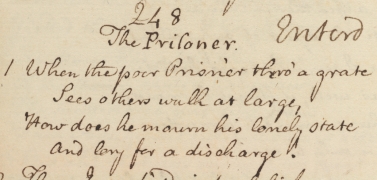 248
The Prisoner. Enterd
1 When the poor Prisner thro' a grate
Sees others walk at large,
How does he mourn his lonely state
And long for a discharge!